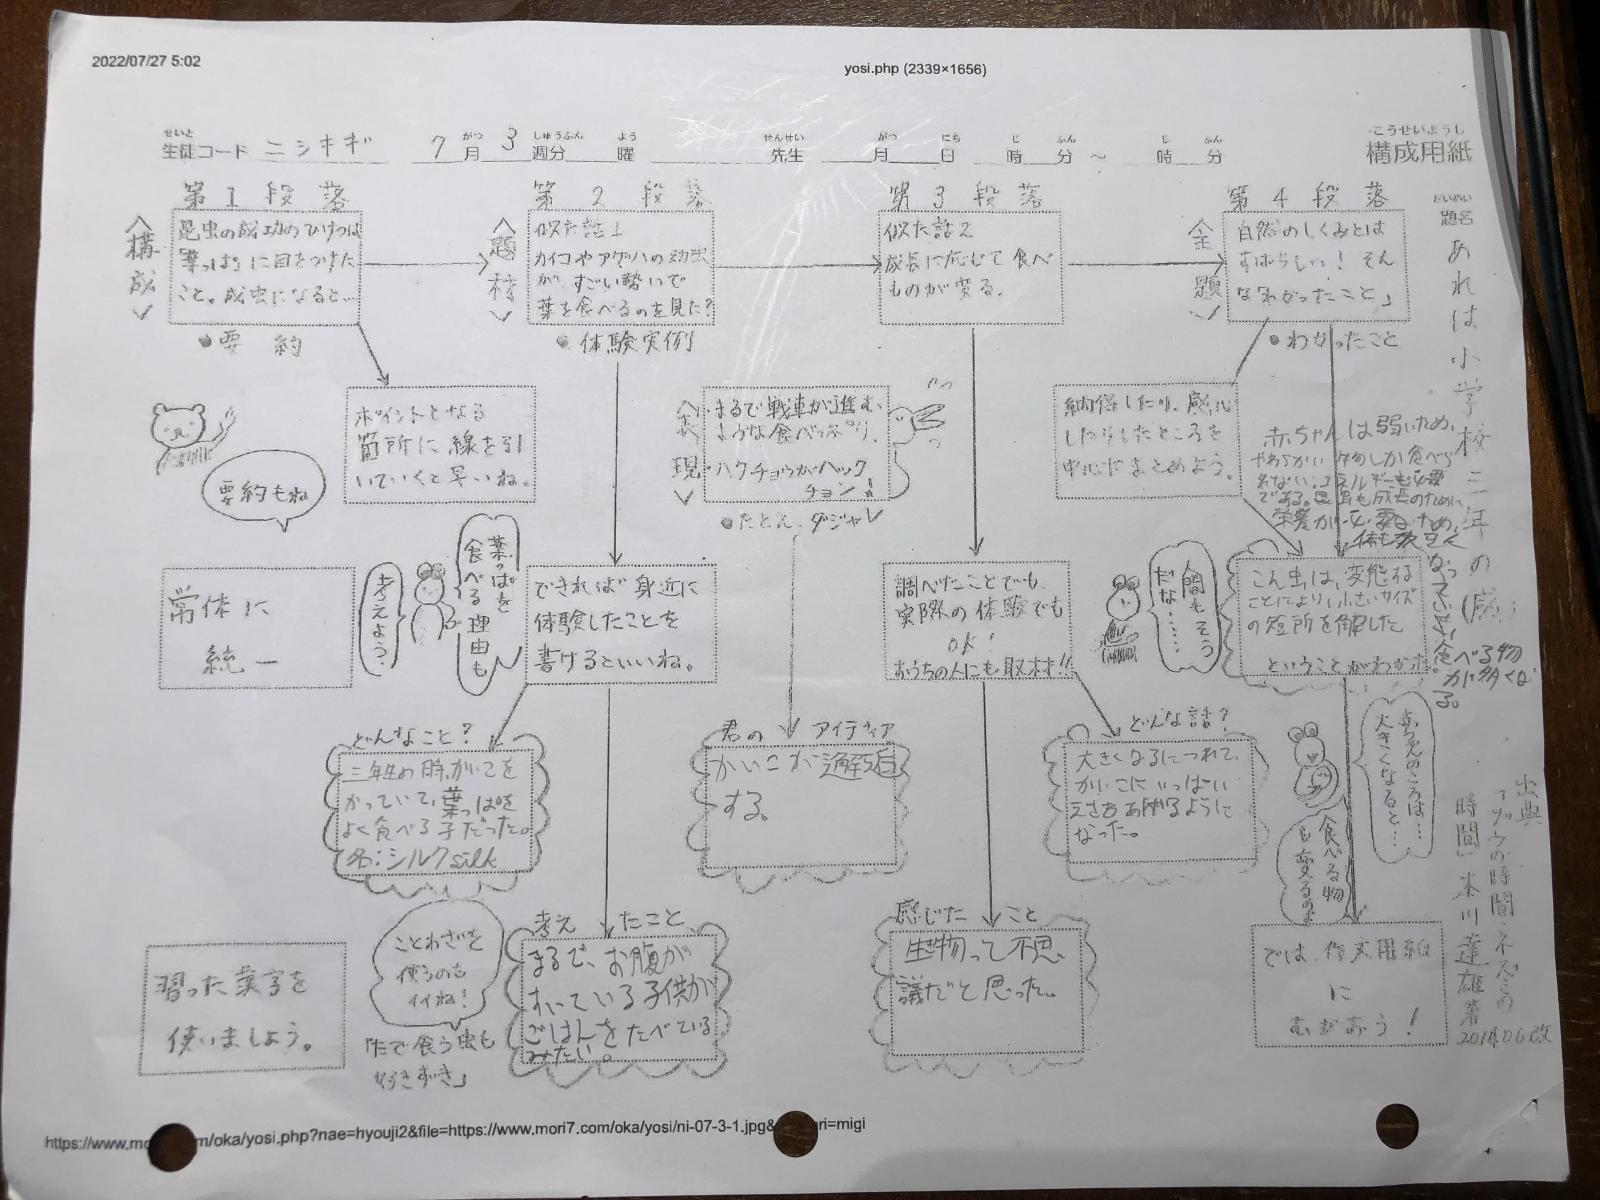 2022/07/27 5:02
yosi.php (2339×1656)
せいと がつ しゅうぶん よう せんせい がつ にち じ ふん じ ふん こうせいようし
生徒コード ニシキギ 7月 3週分 曜 先生 月 日 時 分 ~ 時 分 構成用紙
第1段落
<構成>
昆虫の成功のひけつは
「葉っぱ」に目をつけた
こと。成虫になると…
●要約
第2段落
<題材>
似た話1
カイコやアゲハの幼虫
が、すごい勢いで
葉を食べるのを見た?
●体験実例
第3段落
似た話2
成長に応じて食べ
ものが変る。
第4段落
<主題>
自然のしくみとは
すばらしい!そん
な「わかったこと」
●わかったこと
だいめい
題名
あれは小学校三年の
ポイントとなる
箇所に線を引
いていくと早いね。
要約もね
<表現>
・まるで戦車が進む、
ような食べっぷり。
・ハクチョウがハック
チョン!
●たとえ、ダジャレ
納得したり、感心
したりしたところを
中心にまとめよう。
赤ちゃんは弱いため、
やわらかい物しか食べら
れない。エネルギーも必要
である。
成長のために
栄養が必要なため、
常体に
統一
考えよう。
葉っぱを
食べる理由も
できれば身近に
体験したことを
書けるといいね。
調べたことでも、
実際の体験でも
OK!
おうちの人にも取材!!
人間もそう
だな……
こん虫は、変態する
ことにより、小さいサイズ
の短所を解した
ということがわかった。
食べる物
が多くなる。
どんなこと?
三年生の時、かいこを
かっていて、葉っぱを
よく食べる子だった。
名:シルクsilk
君の アイディア
かいこが
する。
どんな話?
大きくなるにつれて、
かいこにいっぱい
えさをあげるように
なった。
赤ちゃんのころは…
大きくなると…
食べる物
も変るのよ
出典
「ゾウの時間ネズミの
時間」本川達雄著
2014.06改
習った漢字を
使いましょう。
ことわざを
使うのも
イイね!
「たで食う虫も
好きずき」
考え たこと
まるで、お腹が
すいている子供が
ごはんをたべている
みたい。
感じた こと
生き物って不思
議だと思った。
では、作文用紙
に
むかおう!